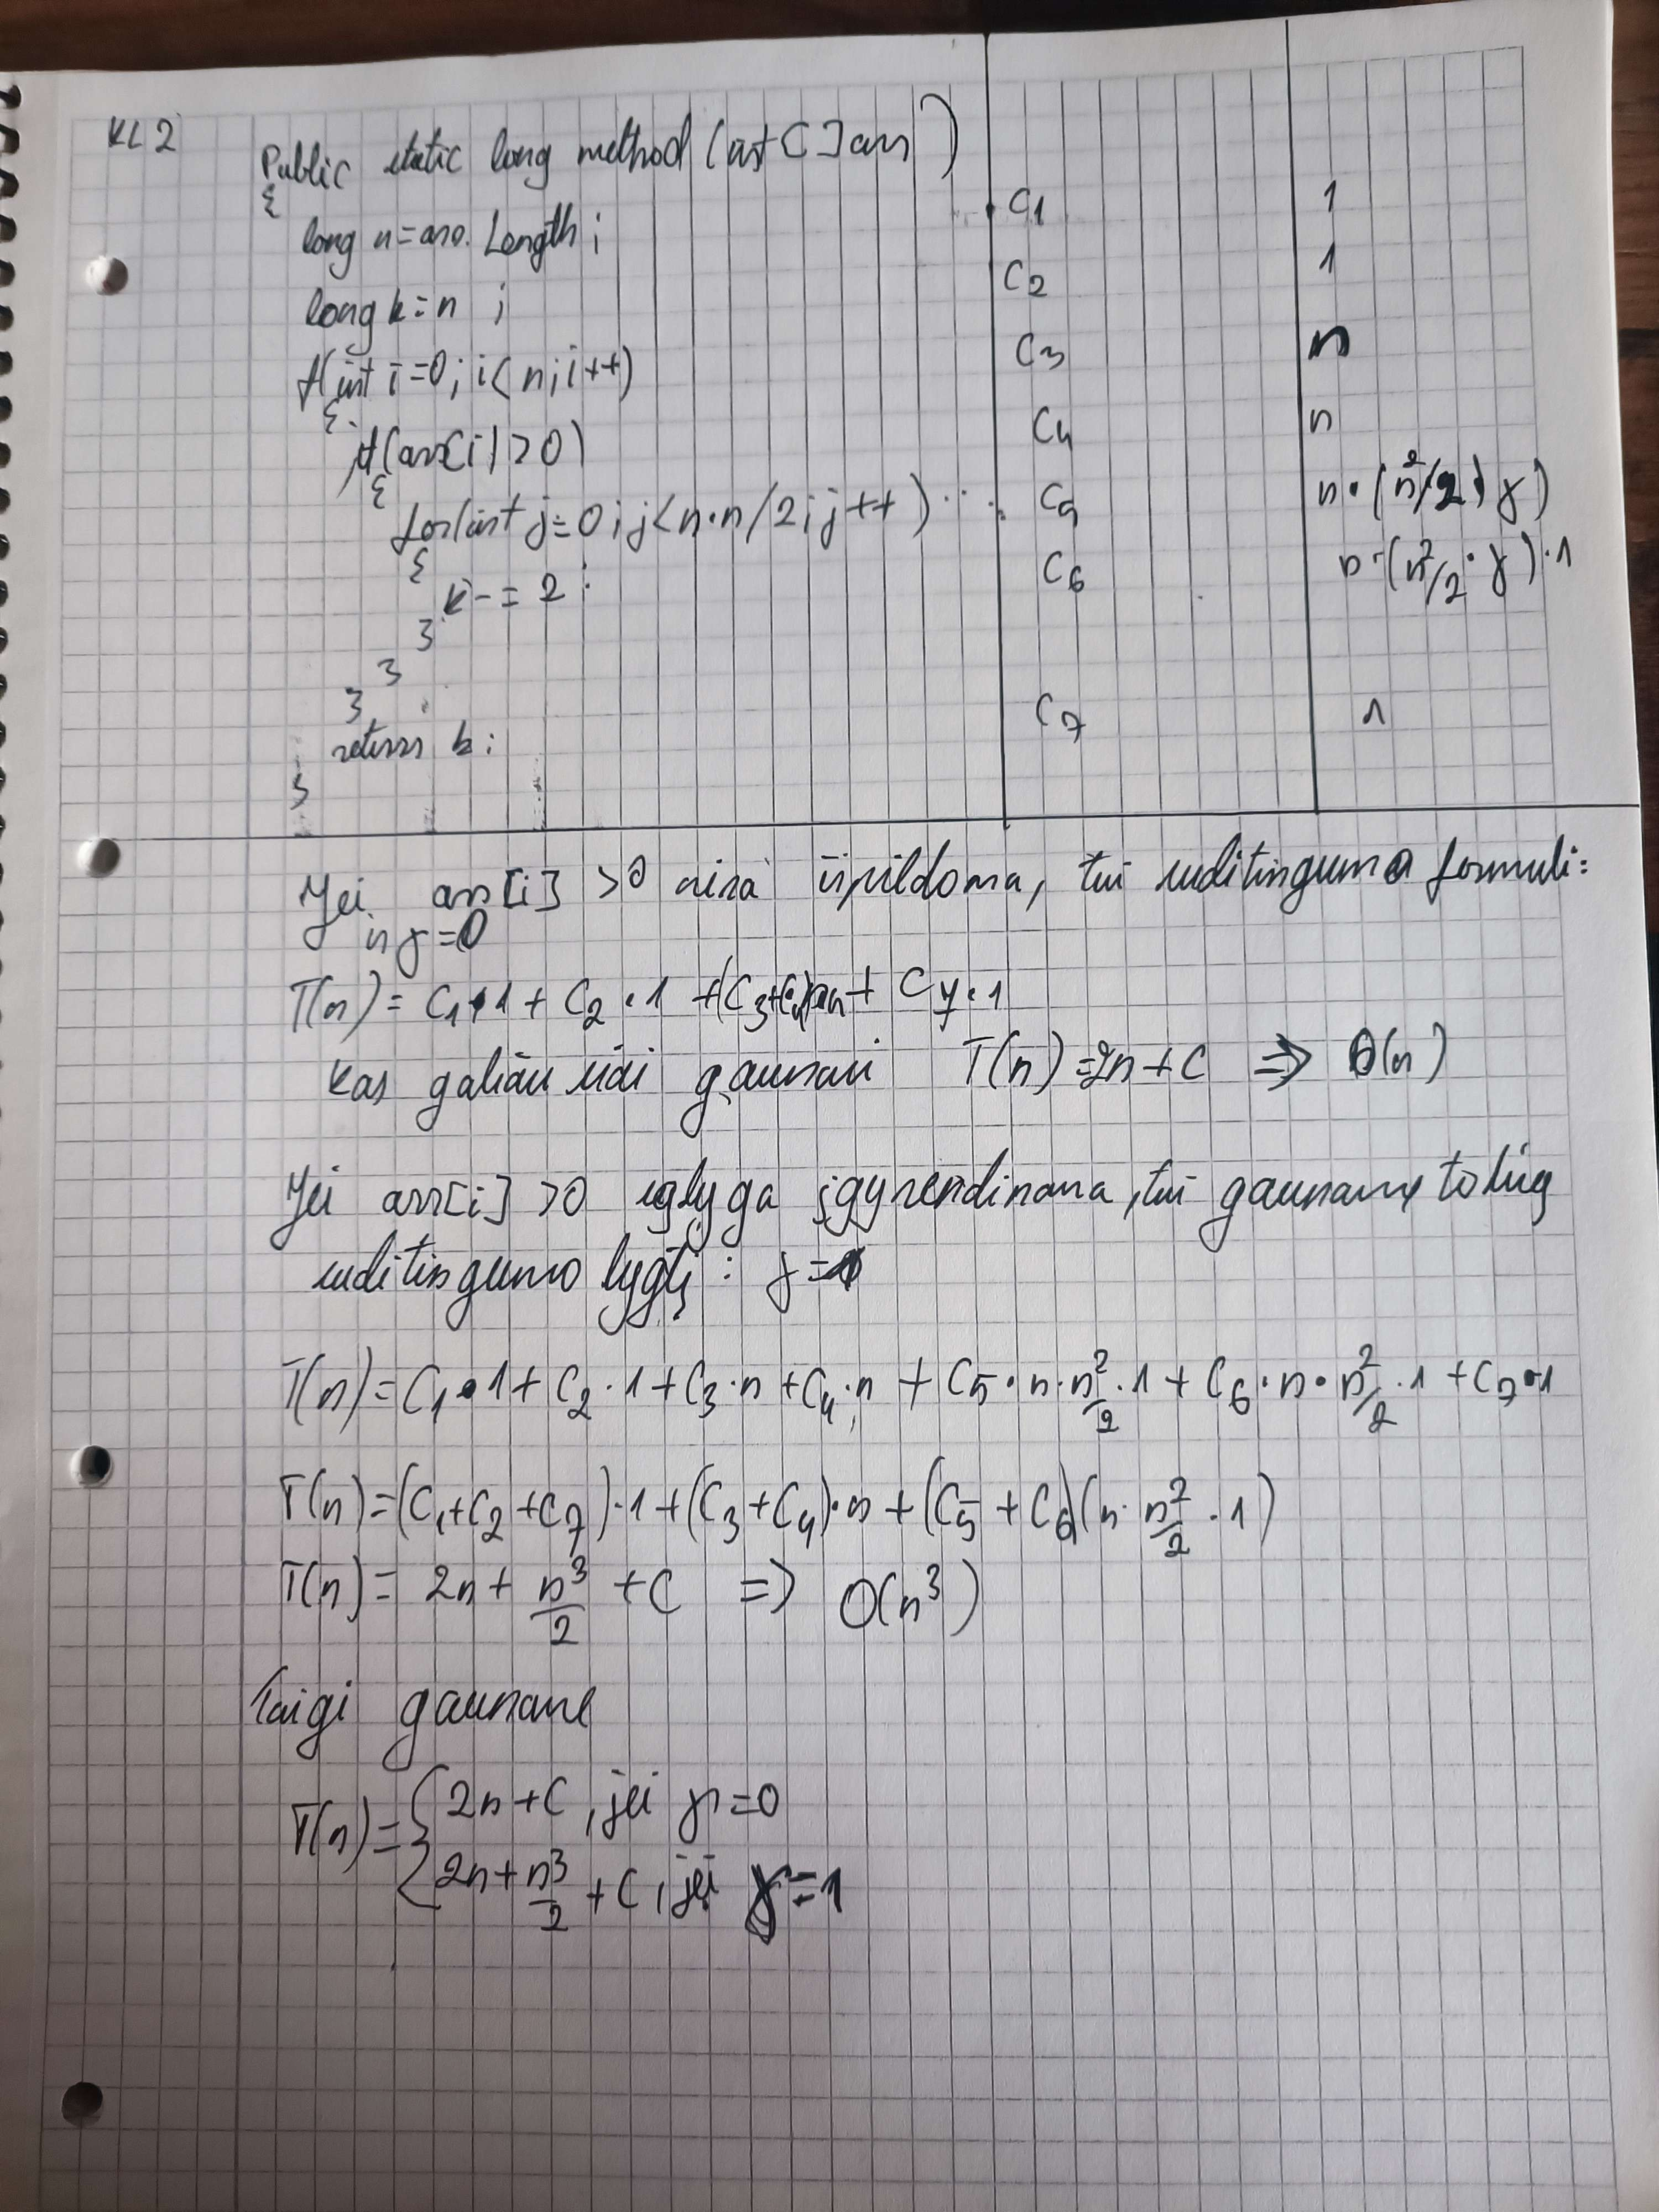 KL 2
Public static long method (int [] arr) 
{ C1 1
long n = arr. Length ;
long k = n ; C2 1
f(int i=0; i< n; i++) C3 n
{
if(arr[i] >0) C4 n
{
for(int j=0; j<n·n/2; j++) C5 n·(n²/2) γ)
{
k-= 2 ; C6 n·(n²/2·γ)·1
}
}
}
return k; C7 1
}
Jei arr[i] >0 nėra išpildoma, tai sudėtingumo formulė:
ir γ=0
T(n)= C1·1 + C2·1 +(C3+C4)·n + C7·1
kas galiausiai gaunasi T(n)=2n+C => O(n)
Jei arr[i] >0 sąlyga įgyvendinama, tai gauname tokią
sudėtingumo lygtį: γ=1
T(n)=C1·1+ C2·1+C3·n+C4·n + C5·n·n²/2·1+ C6·n·n²/2·1 +C7·1
T(n)=(C1+C2+C7)·1+(C3+C4)·n +(C5+C6)(n·n²/2·1)
T(n)= 2n+ n³/2 +C => O(n³)
Taigi gauname
T(n)={2n+C, jei γ=0
{2n+n³/2 +C, jei γ=1